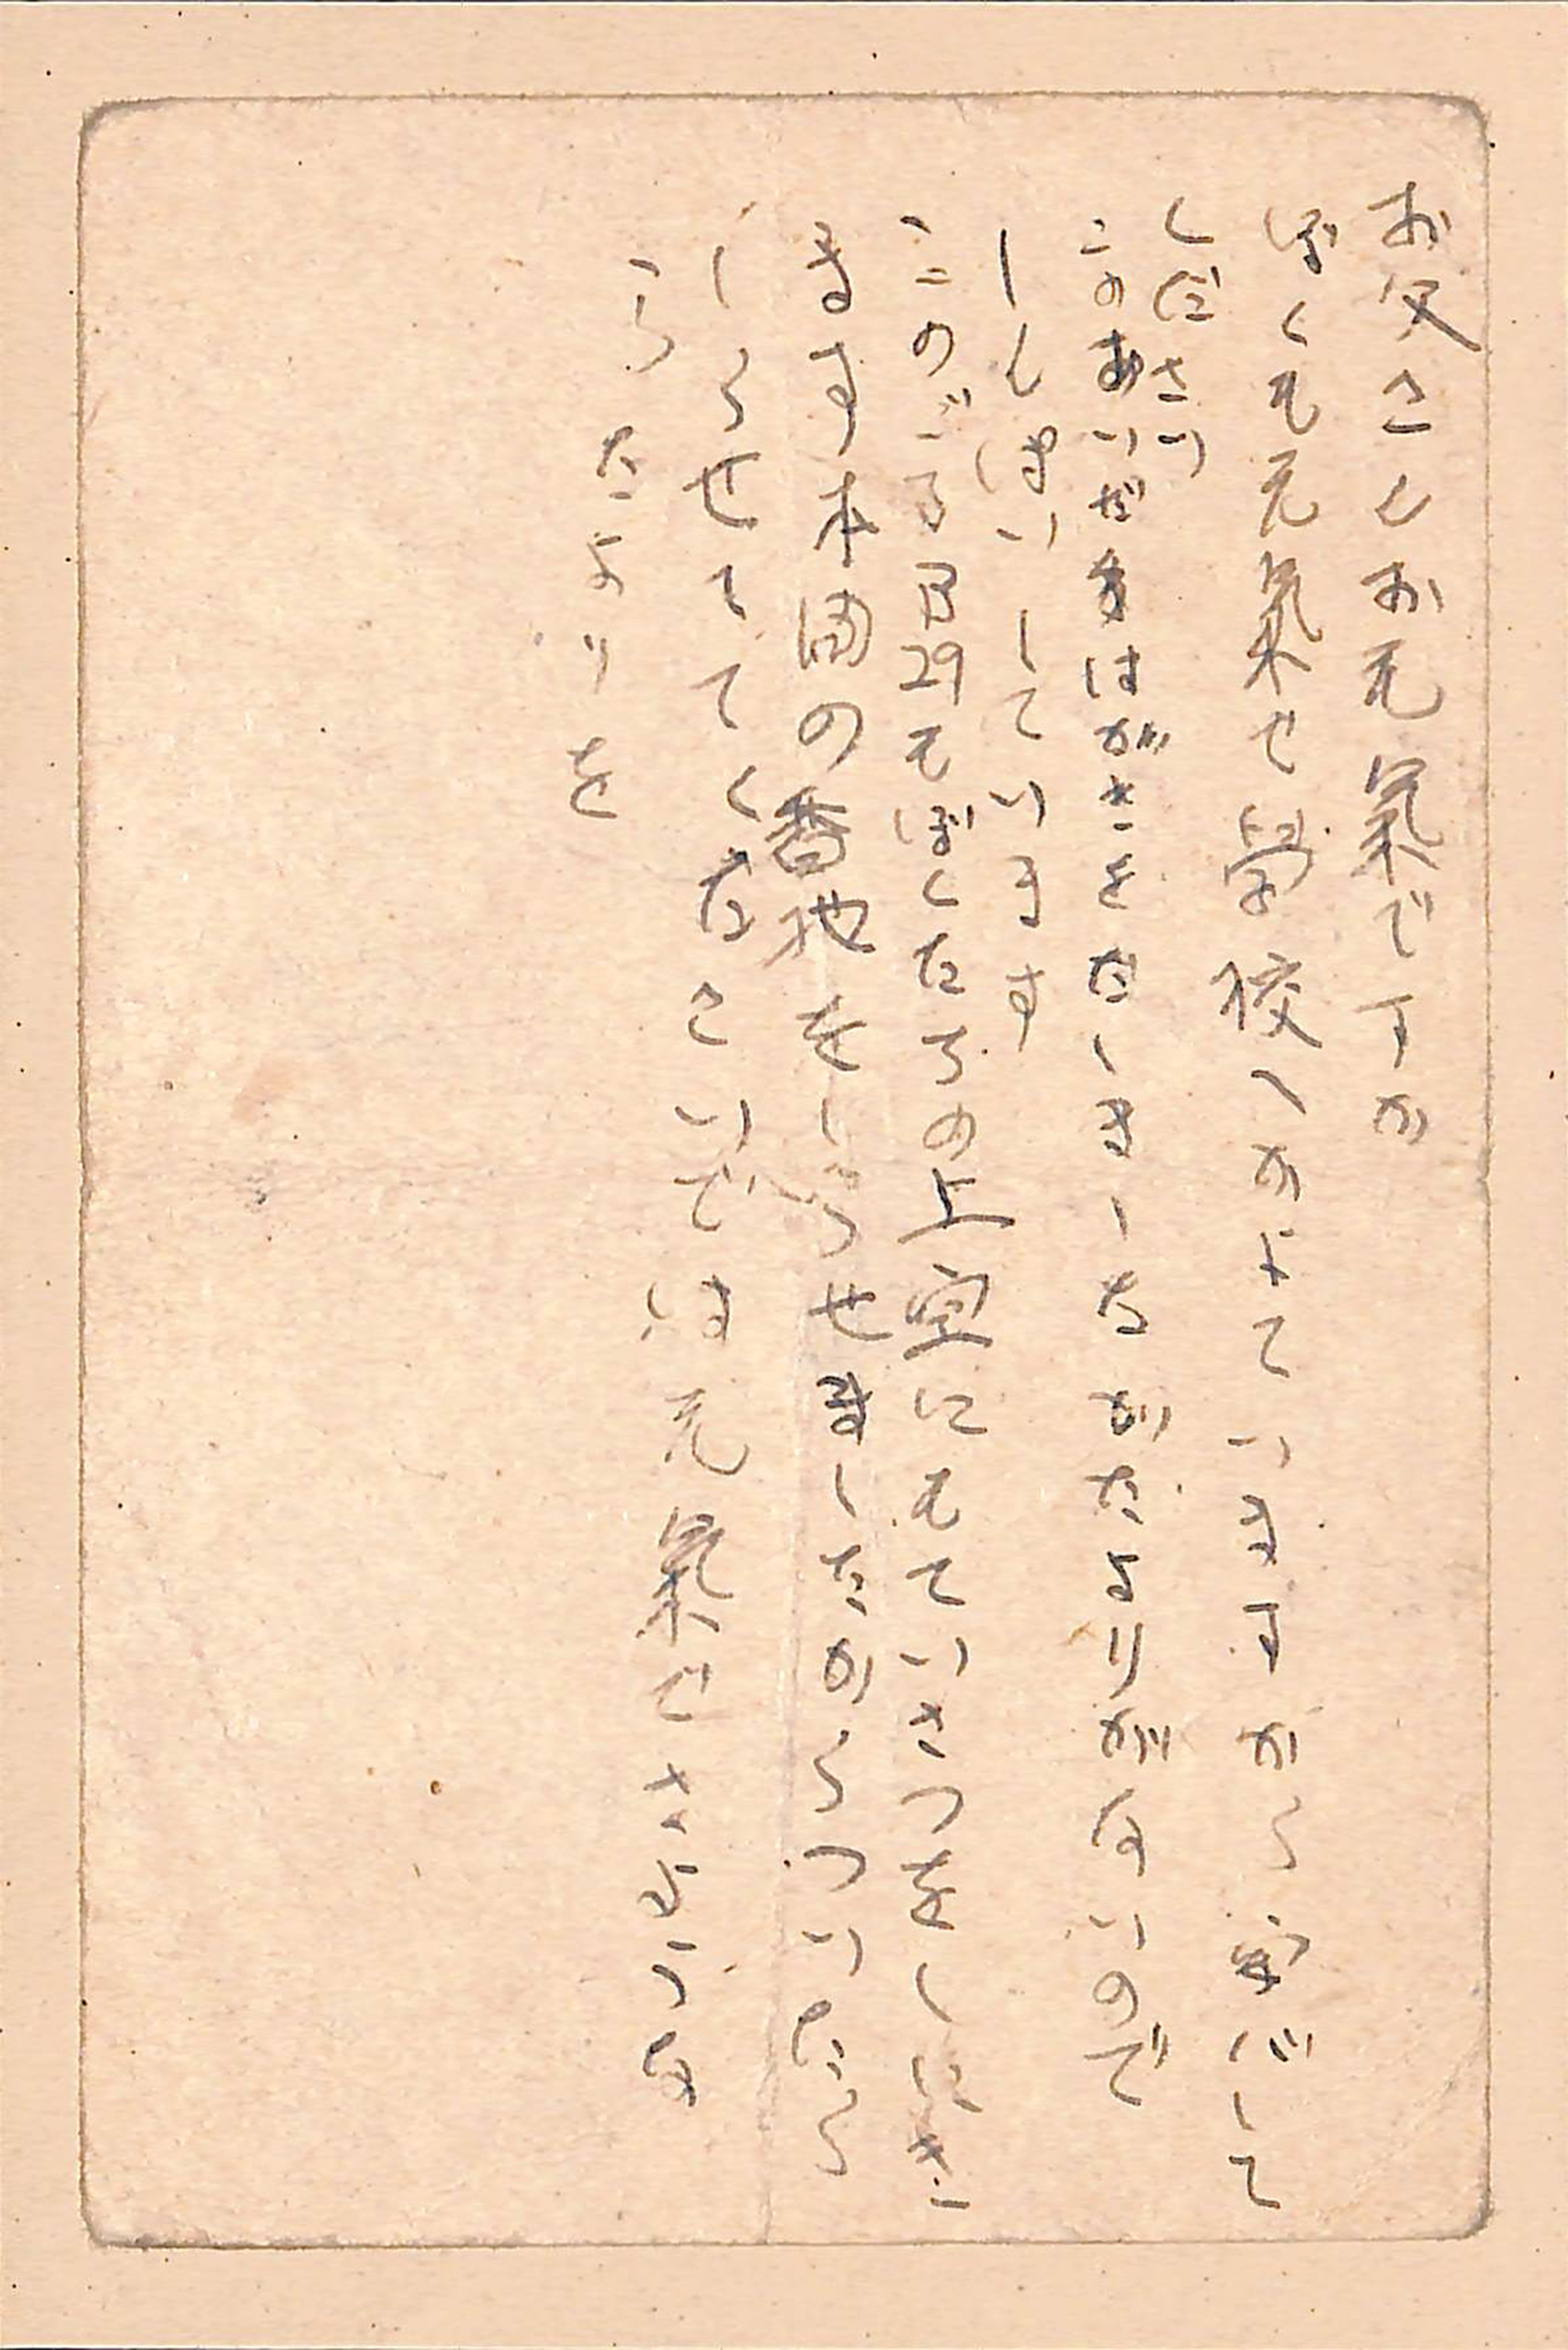 お父さんお元氣ですか
ぼくも元氣で學校へかよていますから安心して
くださいり
このあいだはがきをだしましたがたよりがないので
しんぱいしています
このごろB29もぼくたちの上空にもていさつをしにき
ます本田の番地をしらせましたからついたら
しらせててくださいでは元氣でさような
らたよりを